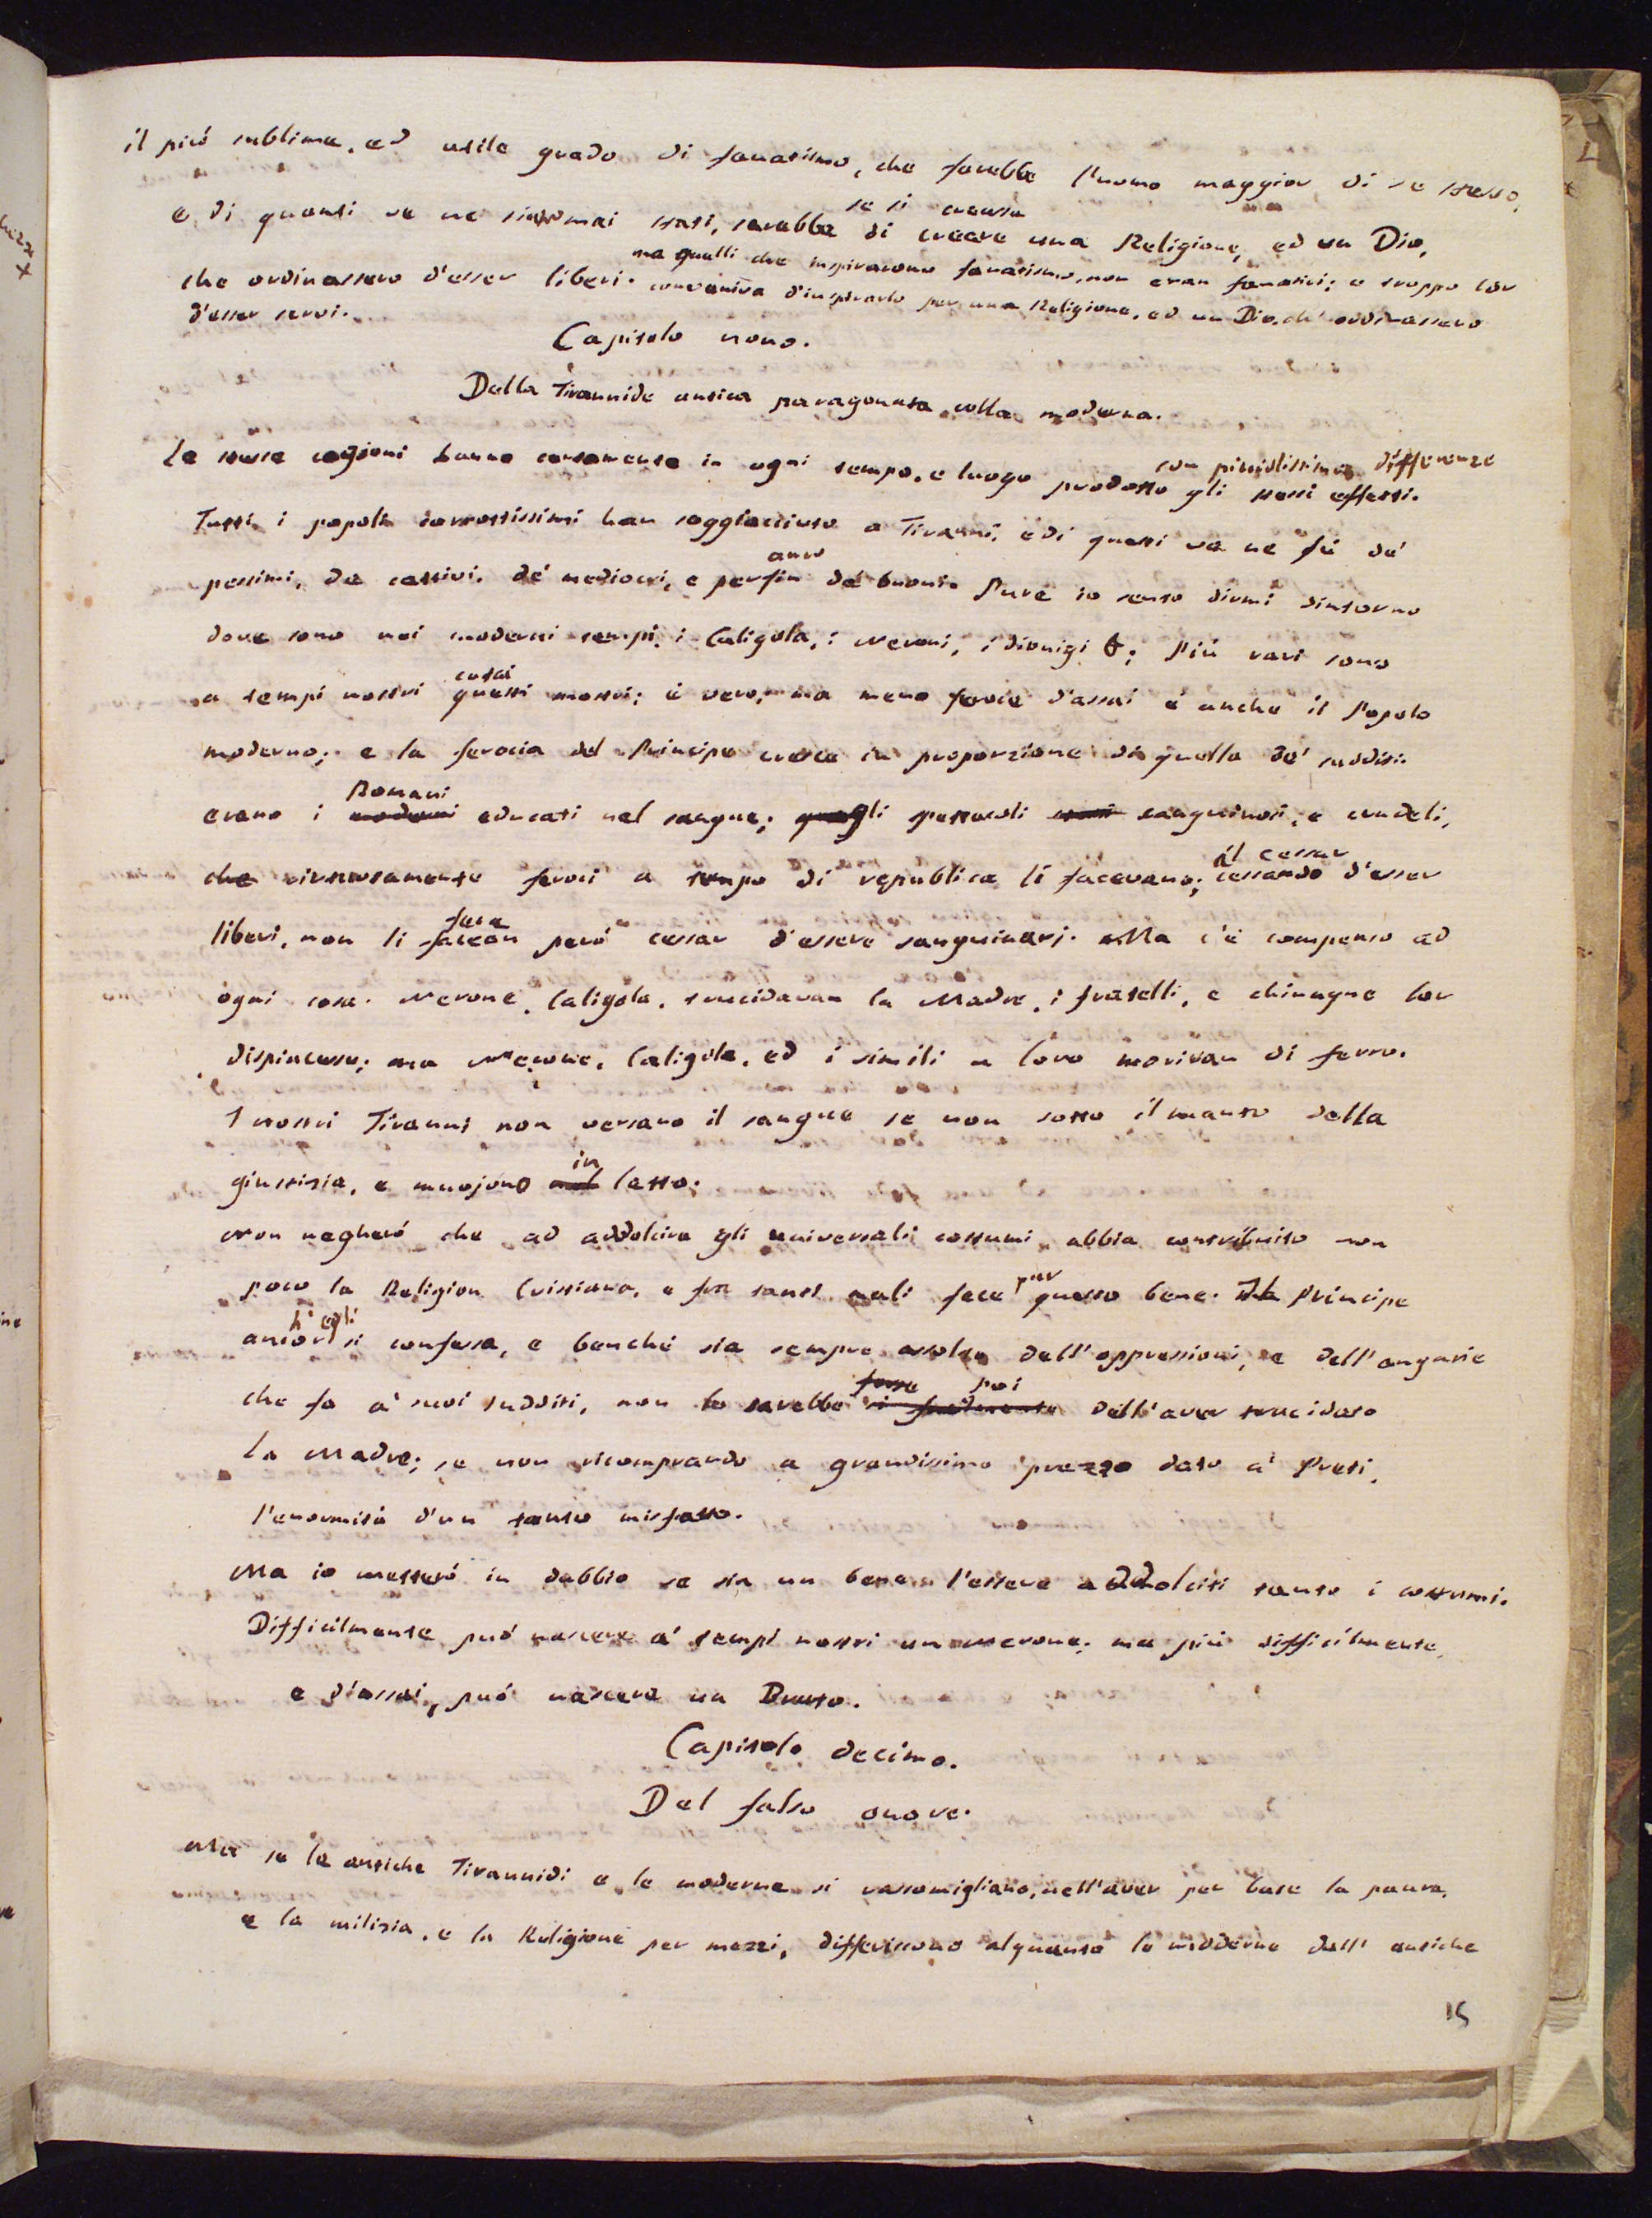 il piú sublime, ed utile grado di fanatismo, che farebbe l'uomo maggior di se stesso,
se si creasse
e di quanti ve ne siano mai stati, sarebbe di creare una Religione, ed un Dio,
ma quelli che inspirarono fanatismo, non eran fanatici; e troppo lor
che ordinassero d'esser liberi. conveniva d'inspirarlo per una Religione, ed un Dio, ch'ordinassero
d'esser servi.
Capitolo nono.
Della Tirannide antica paragonata colla moderna.
con picciolissima differenze
Le stesse cagioni hanno certamente in ogni tempo, e luogo prodotto gli stessi effetti.
Tutti i popoli corrottissimi han soggiaciuto a Tiranni, e di questi ve ne fú de'
anco
pessimi, de cattivi, de' mediocri, e perfin de' buoni. Pure io sento dirmi dintorno
dove sono nei moderni tempi i Caligola, i Neroni, i Dionigi &; Piú rari sono
cotai
a tempi nostri questi mostri; è vero; ma meno feroce d'assai è anche il Popolo
moderno; e la ferocia del Principe cresce in proporzione di quella de' sudditi.
Romani
erano i moderni educati nel sangue; gli spettacoli sanguinosi, e crudeli,
il cessar
che virtuosamente feroci a tempo di republica li facevano; cessando d'esser
fece
liberi, non li faceon peró cessar d'essere sanguinarj. Ma c'è compenso ad
ogni cosa. Nerone, Caligola, trucidavan la Madre, i fratelli, e chiunque lor
dispiacesse; ma Nerone, Caligola, ed i simili a loro morivan di ferro.
I nostri Tiranni non versano il sangue se non sotto il manto della
in
giustizia, e muojono nel letto.
Non negheró che ad addolcire gli universali costumi abbia contribuito non
pur
poco la Religion Cristiana, e fra tanti mali fece questo bene. Il Principe
h'egli
ancor si confessa, e benché sia sempre assolto dell'oppressioni, e dell'angarie
forse poi
che fa a' suoi sudditi, non lo sarebbe dell'aver trucidato
la Madre; se non ricomprando a grandissimo prezzo dato a' Preti,
l'enormità d'un tanto misfatto.
Ma io metteró in dubbio se sia un bene l'essere addolciti tanto i costumi.
Difficilmente puó nascere a' tempi nostri un Nerone; ma piú difficilmente,
e d'assai, puó nascere un Bruto.
Capitolo decimo.
Del falso onore.
Ma se le antiche Tirannidi e le moderne si rassomigliano, nell'aver per base la paura,
e la milizia, e la Religione per mezzi, differiscono alquanto le moderne dall'antiche
15